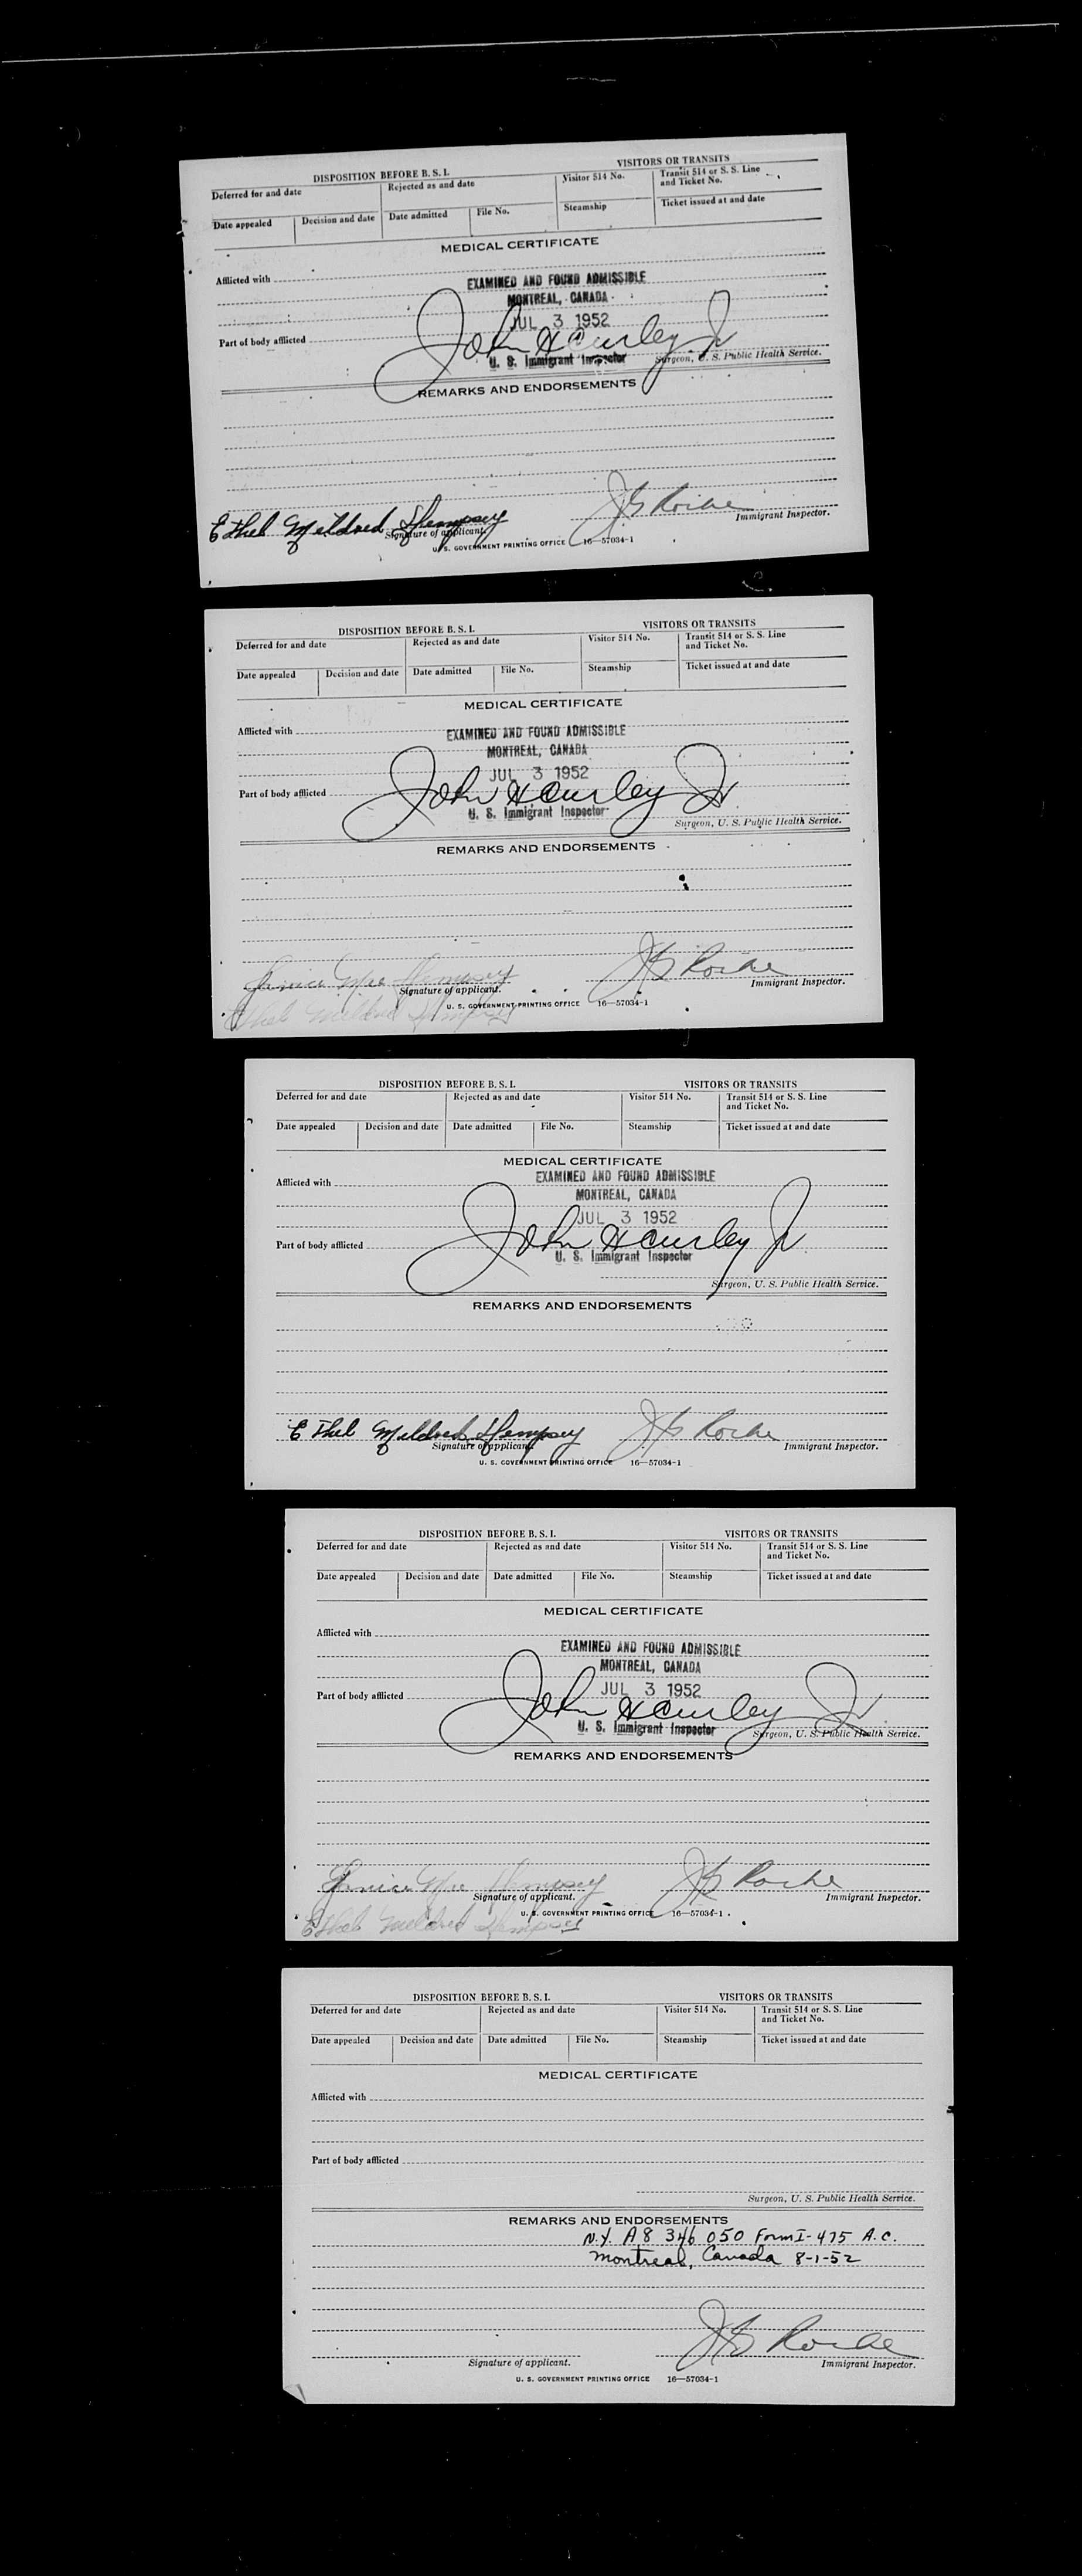 DISPOSITION BEFORE B. S. I. VISITORS OR TRANSITS
Deferred for and date Rejected as and date Visitor 514 No. Transit 514 or S. S. Line and Ticket No.
Date appealed Decision and date Date admitted File No. Steamship Ticket issued at and date
MEDICAL CERTIFICATE
Afflicted with
EXAMINED AND FOUND ADMISSIBLE
MONTREAL, CANADA
JUL 3 1952
Part of body afflicted John H Curley Jr
U. S. Immigrant Inspector Surgeon, U. S. Public Health Service.
REMARKS AND ENDORSEMENTS
Ethel Mildred Hempsey
Signature of applicant. Immigrant Inspector.
U. S. GOVERNMENT PRINTING OFFICE 16—57034-1
DISPOSITION BEFORE B. S. I. VISITORS OR TRANSITS
Deferred for and date Rejected as and date Visitor 514 No. Transit 514 or S. S. Line and Ticket No.
Date appealed Decision and date Date admitted File No. Steamship Ticket issued at and date
MEDICAL CERTIFICATE
Afflicted with
EXAMINED AND FOUND ADMISSIBLE
MONTREAL, CANADA
JUL 3 1952
Part of body afflicted John H Curley Jr
U. S. Immigrant Inspector
Surgeon, U. S. Public Health Service.
REMARKS AND ENDORSEMENTS
Mae Hempsey
Signature of applicant. Immigrant Inspector.
U. S. GOVERNMENT PRINTING OFFICE 16—57034-1
Ethel Mildred Hempsey
DISPOSITION BEFORE B. S. I. VISITORS OR TRANSITS
Deferred for and date Rejected as and date Visitor 514 No. Transit 514 or S. S. Line and Ticket No.
Date appealed Decision and date Date admitted File No. Steamship Ticket issued at and date
MEDICAL CERTIFICATE
EXAMINED AND FOUND ADMISSIBLE
Afflicted with
MONTREAL, CANADA
JUL 3 1952
Part of body afflicted John H Curley Jr
U. S. Immigrant Inspector
Surgeon, U. S. Public Health Service.
REMARKS AND ENDORSEMENTS
Ethel Mildred Hempsey
Signature of applicant. Immigrant Inspector.
U. S. GOVERNMENT PRINTING OFFICE 16—57034-1
DISPOSITION BEFORE B. S. I. VISITORS OR TRANSITS
Deferred for and date Rejected as and date Visitor 514 No. Transit 514 or S. S. Line and Ticket No.
Date appealed Decision and date Date admitted File No. Steamship Ticket issued at and date
MEDICAL CERTIFICATE
Afflicted with
EXAMINED AND FOUND ADMISSIBLE
MONTREAL, CANADA
JUL 3 1952
Part of body afflicted John H Curley Jr
U. S. Immigrant Inspector Surgeon, U. S. Public Health Service.
REMARKS AND ENDORSEMENTS
Mae Hempsey
Signature of applicant. Immigrant Inspector.
U. S. GOVERNMENT PRINTING OFFICE 16—57034-1
Ethel Mildred Hempsey
DISPOSITION BEFORE B. S. I. VISITORS OR TRANSITS
Deferred for and date Rejected as and date Visitor 514 No. Transit 514 or S. S. Line and Ticket No.
Date appealed Decision and date Date admitted File No. Steamship Ticket issued at and date
MEDICAL CERTIFICATE
Afflicted with
Part of body afflicted
Surgeon, U. S. Public Health Service.
REMARKS AND ENDORSEMENTS
N.Y. A8 346 050 Form I-475 A.C.
Montreal, Canada 8-1-52
Signature of applicant. Immigrant Inspector.
U. S. GOVERNMENT PRINTING OFFICE 16—57034-1